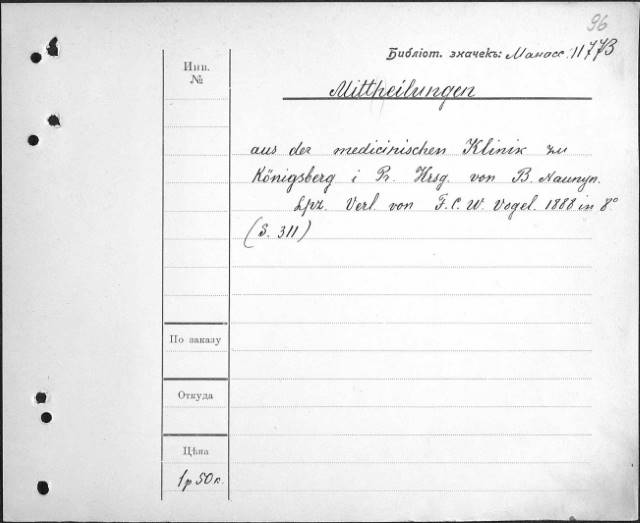 96
Библіот. значекъ: Манасс. 11773
Mittheilungen
aus der medicinischen Klinik zu
Königsberg i Pr. Hrsg. von B. Naunyn.
Lpz. Verl. von F. C. W. Vogel. 1888 in 8°
(S. 311)
Инв.
№
По заказу
Откуда
Цѣна
1 р 50 к.